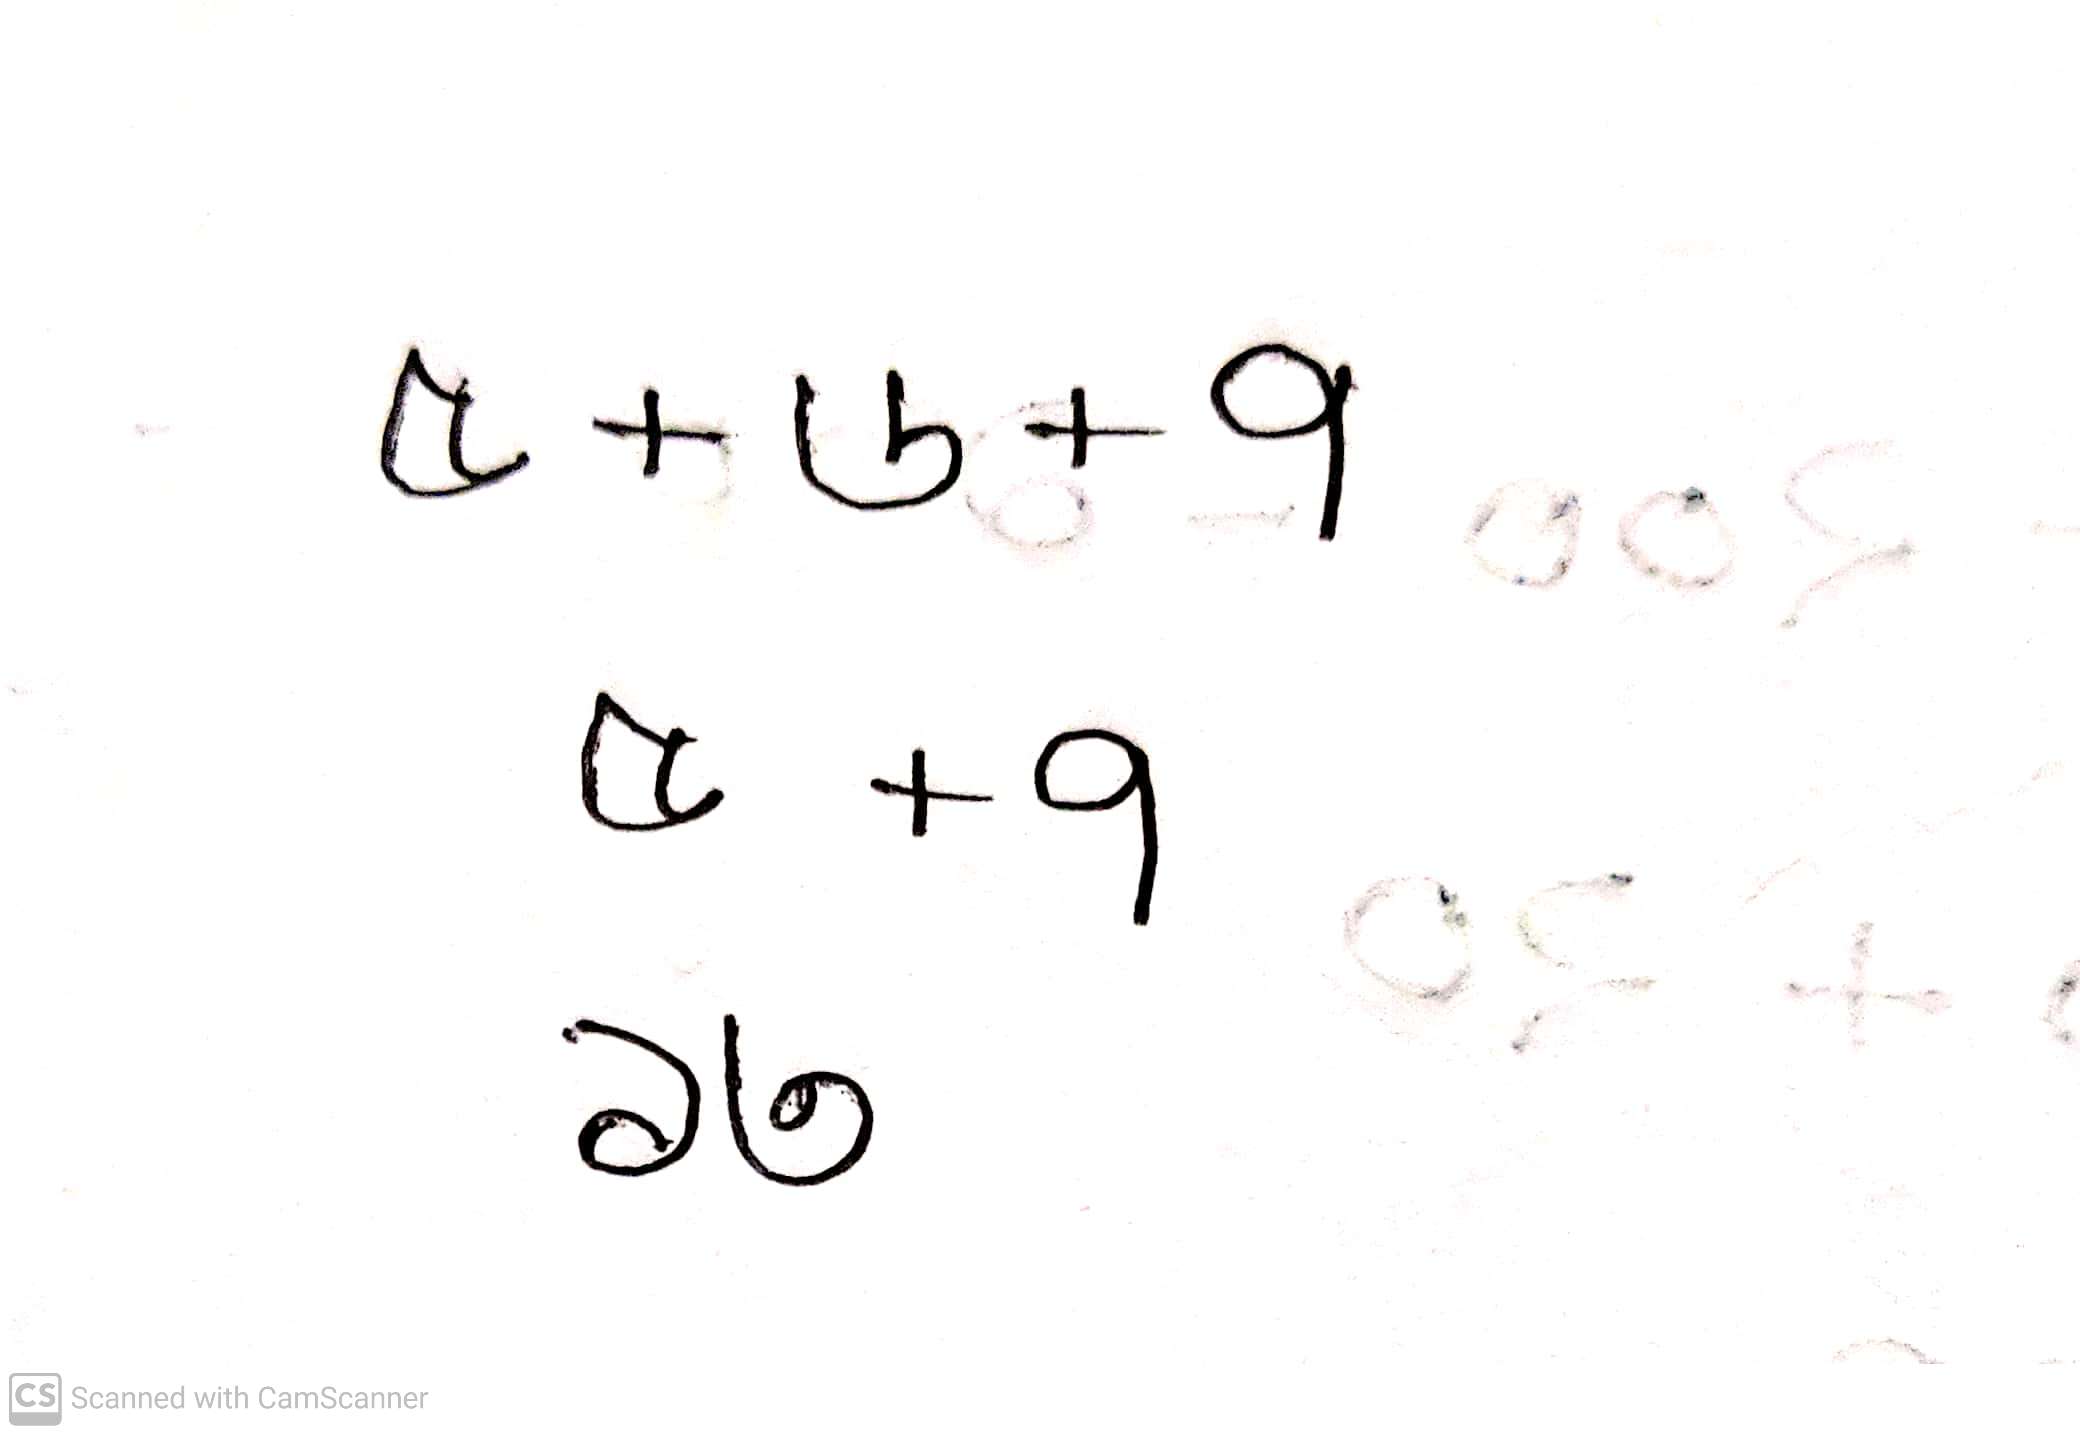 ৫ + ৬ + ৭
৫ + ৭
১৩
CS Scanned with CamScanner